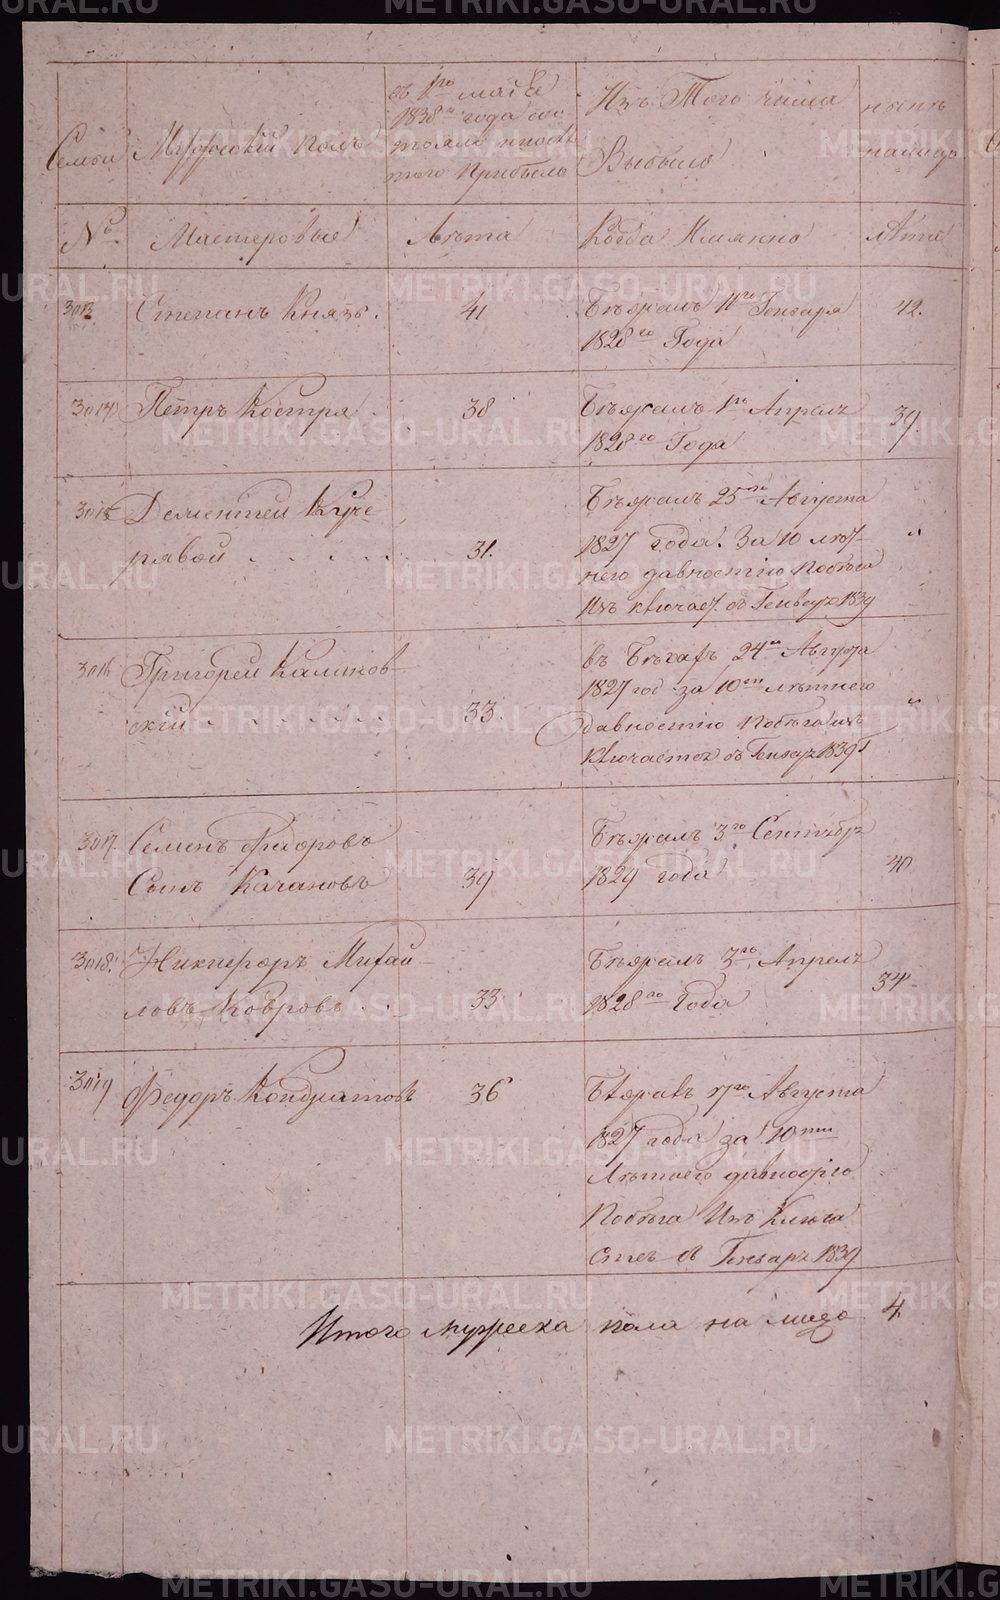 Семьи
Мужеский полъ
съ 1го маiя
1838го года сос
тояло и посля
того прибыло
Изъ Того числа
Выбыло
нынѣ
налицо
№
Мастеровые
Лѣта
Когда Имянно
лѣта
3013
Степанъ Князь.
41
Бѣжалъ 11го Генваря
1828го Года
42.
3014
Петръ Костря
38
Бѣжалъ 1го Апреля
1828го Года
39.
3015
Дементей Куче
рявой . . . . .
31.
Бѣжалъ 25го Августа
1827 года. За 10 лѣт
него давностiю Побѣга
Изъ ключает. въ Генваре 1839
"
3016
Григорей Калинов
скiй . . . . . . .
33.
въ Бѣгахъ 24го Августа
1827 год за 10ти лѣтнего
Давностiю Побѣга изъ
ключается въ Генваре 1839 г
"
3017.
Семенъ Федоровъ
Сынъ Качановъ
39
Бѣжалъ 3го Сентября
1829 года
40
3018.
Никифоръ Михай
ловъ Ковровъ . .
33
Бѣжалъ 3го Апреля
1828го Года
34
3019
Федоръ Кондратовъ
36
Бѣжавъ 17го Августа
1827 года за 10ти
Лѣтнего давностiю
Побѣга Изъ Ключа
ется въ Генваре 1839
Итого мужеска пола на лицо 4
METRIKI.GASO-URAL.RU